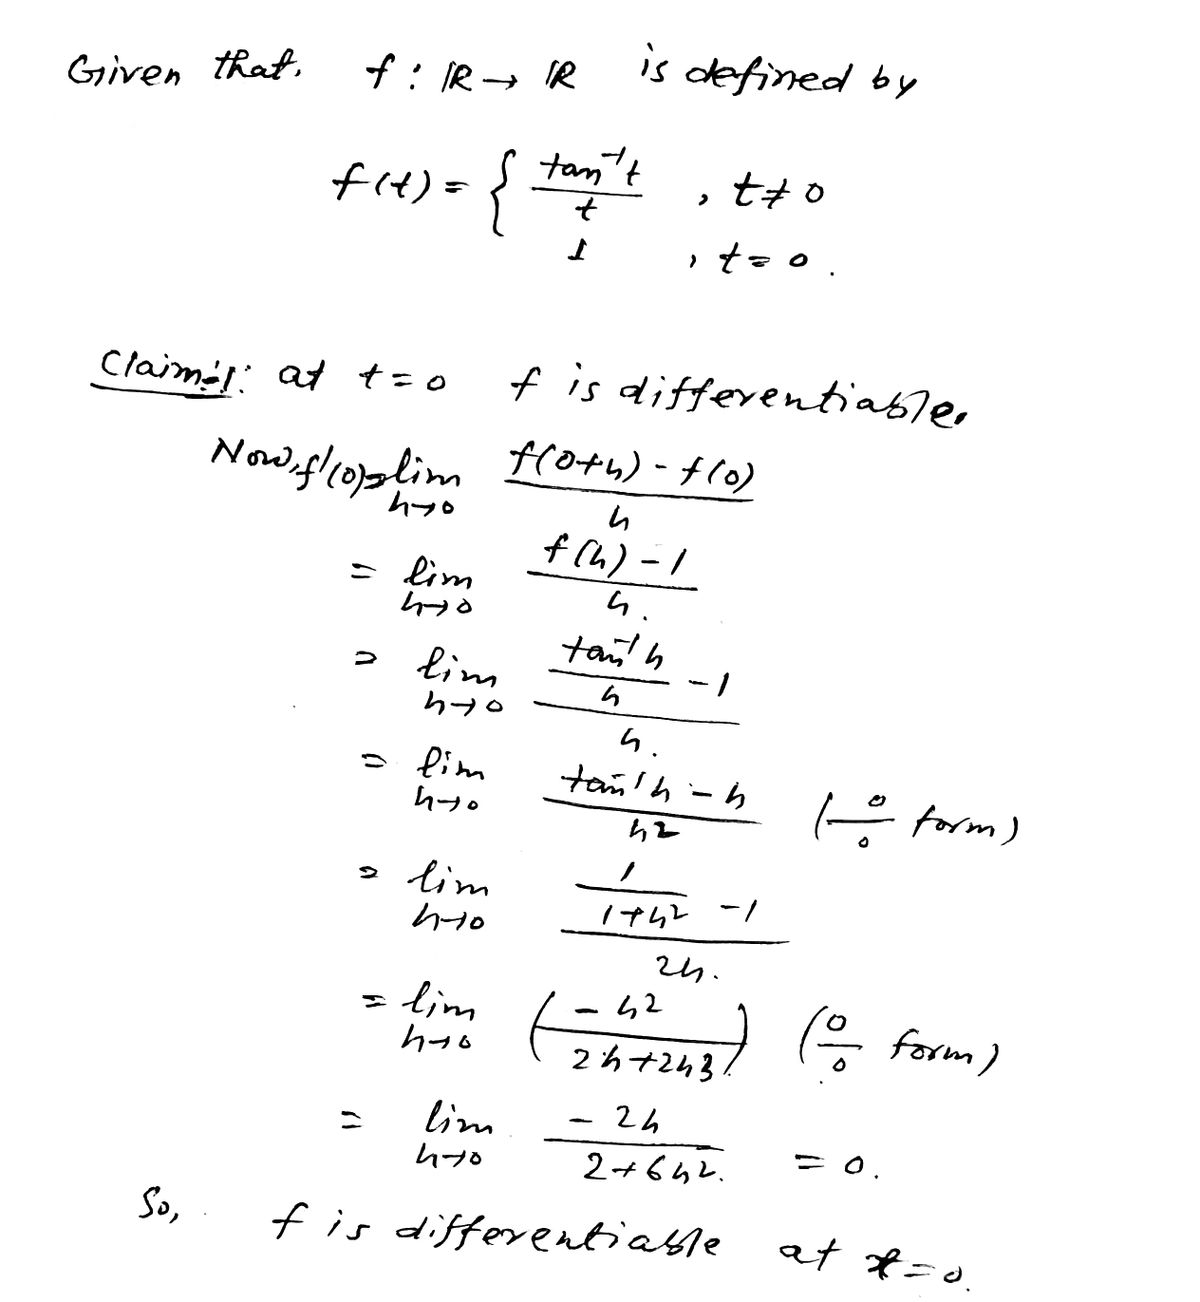 Given that. f : ℝ → ℝ is defined by
f(t) = { tan⁻¹t / t , t ≠ 0
1 , t = 0.
Claim-1: at t = 0 f is differentiable.
Now, f'(0) = lim h→0 (f(0+h) - f(0)) / h
= lim h→0 (f(h) - 1) / h.
= lim h→0 (tan⁻¹h / h - 1) / h.
= lim h→0 (tan⁻¹h - h) / h² (0/0 form)
= lim h→0 (1/(1+h²) - 1) / 2h.
= lim h→0 (-h² / (2h+2h³)) (0/0 form)
= lim h→0 -2h / (2+6h²). = 0.
So, f is differentiable at x=0.